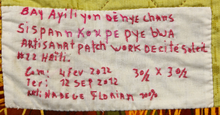 BAY AYITI YON DENYE CHANS
SISPANN KOUPE PYE BWA
ARTISANAT PATCH WORK DECITE SOLEIL
#22 HAÏTI.
Com: 4 FEV 2012 30½ X 30½
Ter: 12 SEP 2012
NADEGE FLORIAN